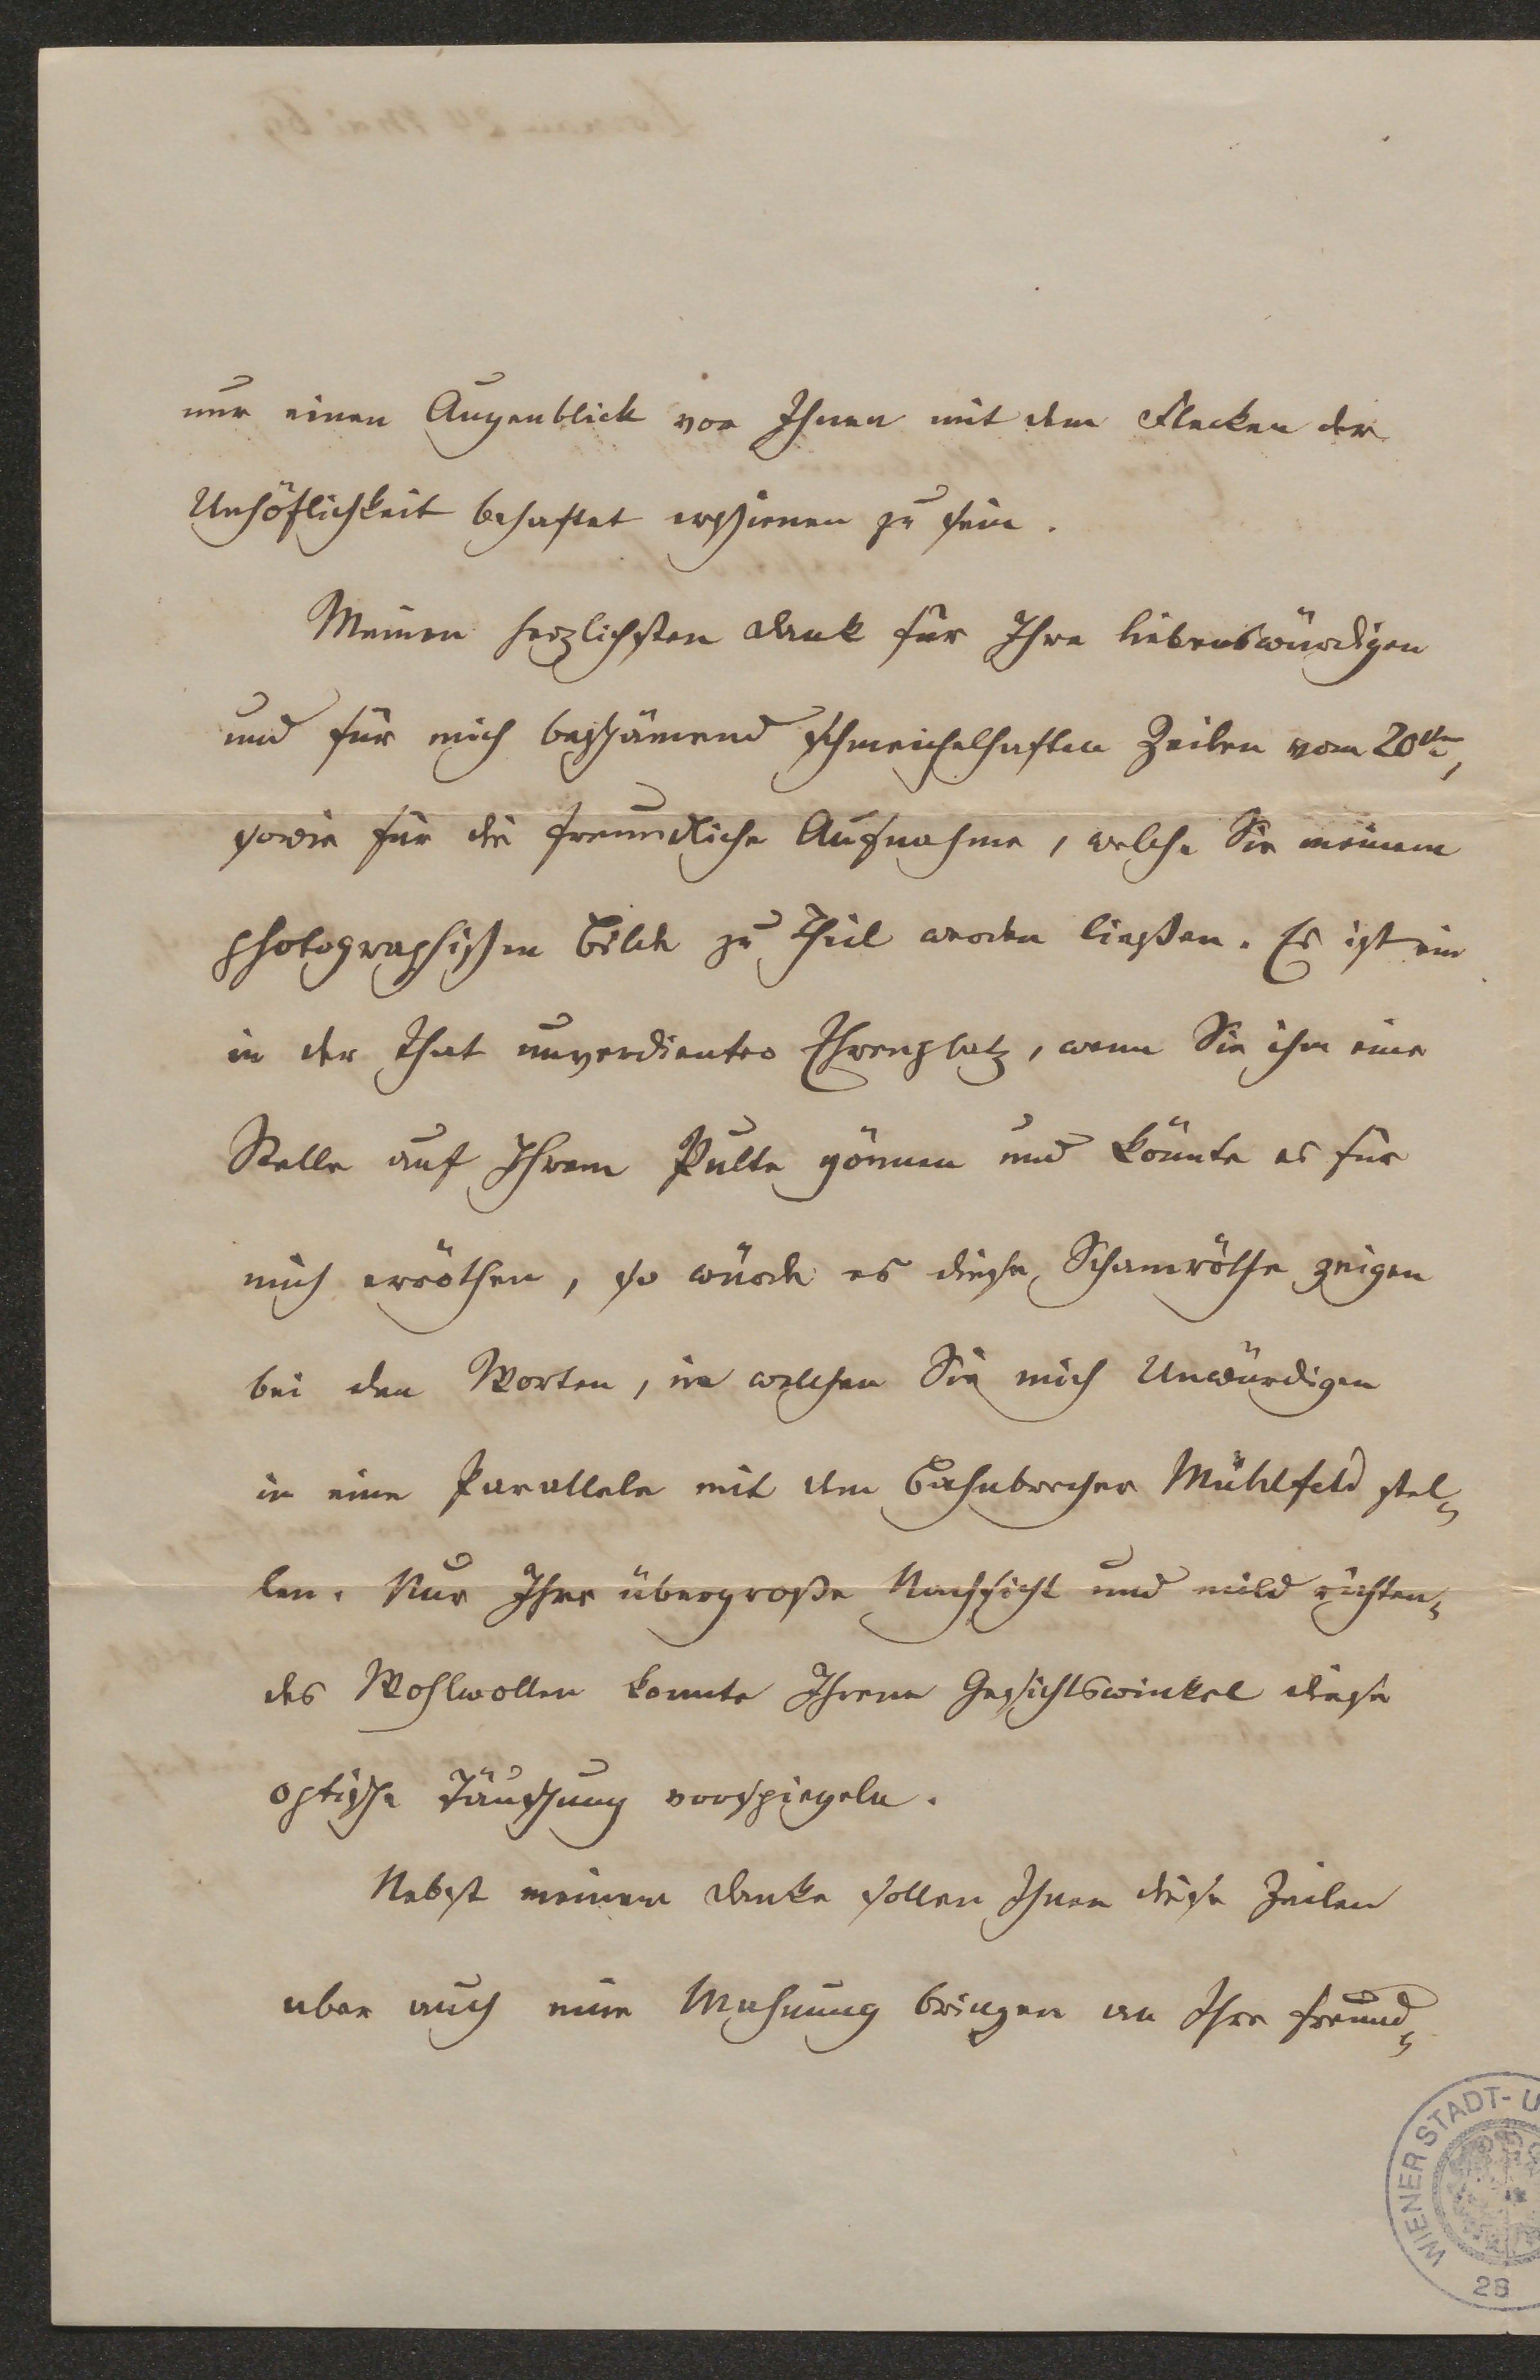 nur einen Augenblick vor Ihnen mit dem Flecken der
Unhöflichkeit behaftet erschienen zu sein.
Meinen herzlichsten Dank für Ihre liebenswürdigen
und für mich beschämend schmeichelhaften Zeilen vom 20ten,
sowie für die freundliche Aufnahme, welche Sie meinem
photographischen Bilde zu Theil werden ließen. Es ist ein
in der That unverdienter Ehrenplatz, wenn Sie ihm eine
Stelle auf Ihrem Pulte gönnen und könnte es für
mich erröthen, so würde es diese Schamröthe zeigen
bei den Worten, in welchen Sie mich Unwürdigen
in eine Parallele mit dem Bahnbrecher Mühlfeld stel-
len. Nur Ihre übergroße Nachsicht und mild richten-
des Wohlwollen konnte Ihrem Gesichtswinkel diese
optische Täuschung vorspiegeln.
Nebst meinem Danke sollen Ihnen diese Zeilen
aber auch eine Mahnung bringen an Ihre freund-
WIENER STADT- U
28